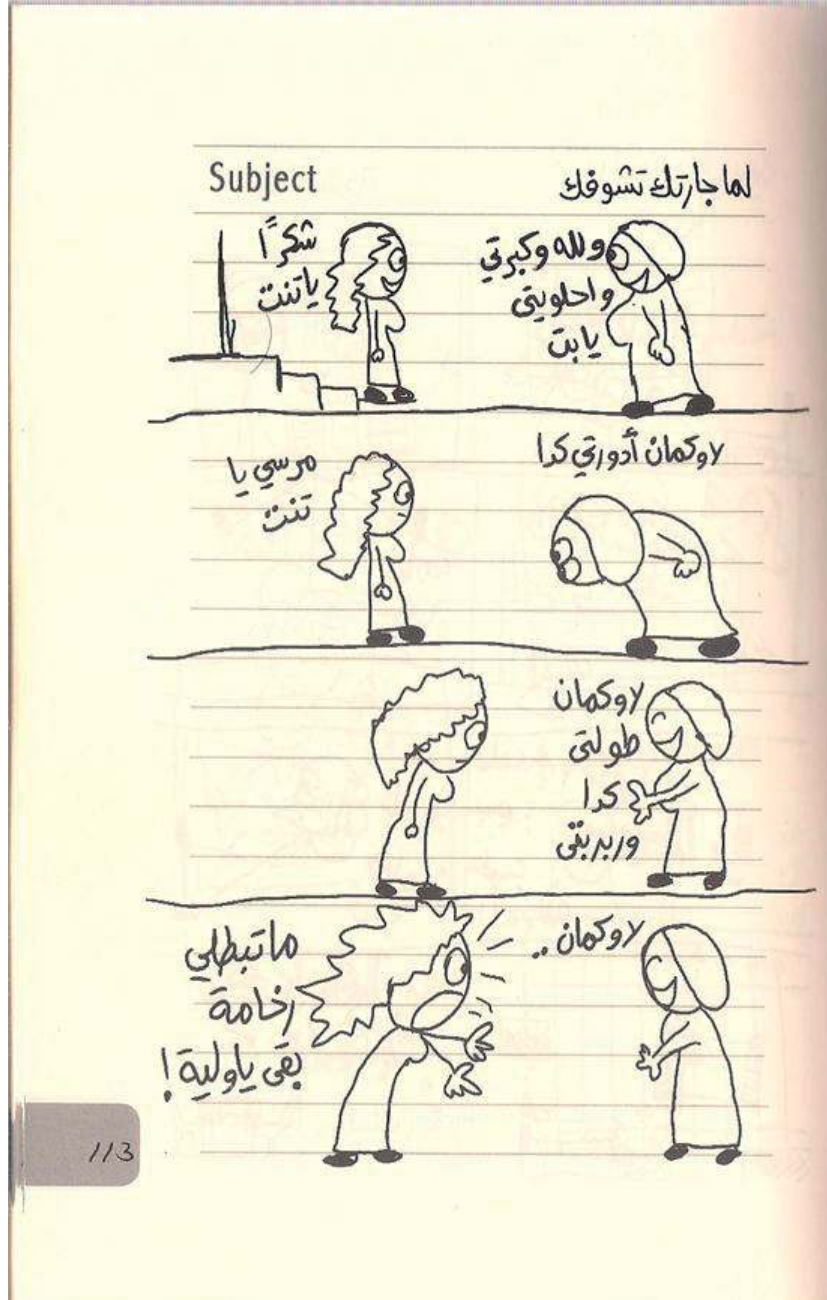 Subject
لما جارتك تشوفك
ولله وكبرتي
واحلويتي
يابت
شكراً
ياتنت
لا وكمان أدورتي كدا
مرسي يا
تنت
لا وكمان
طولتي
كدا
وربربتي
لا وكمان ..
ماتبطلي
رخامة
بقى ياولية !
113